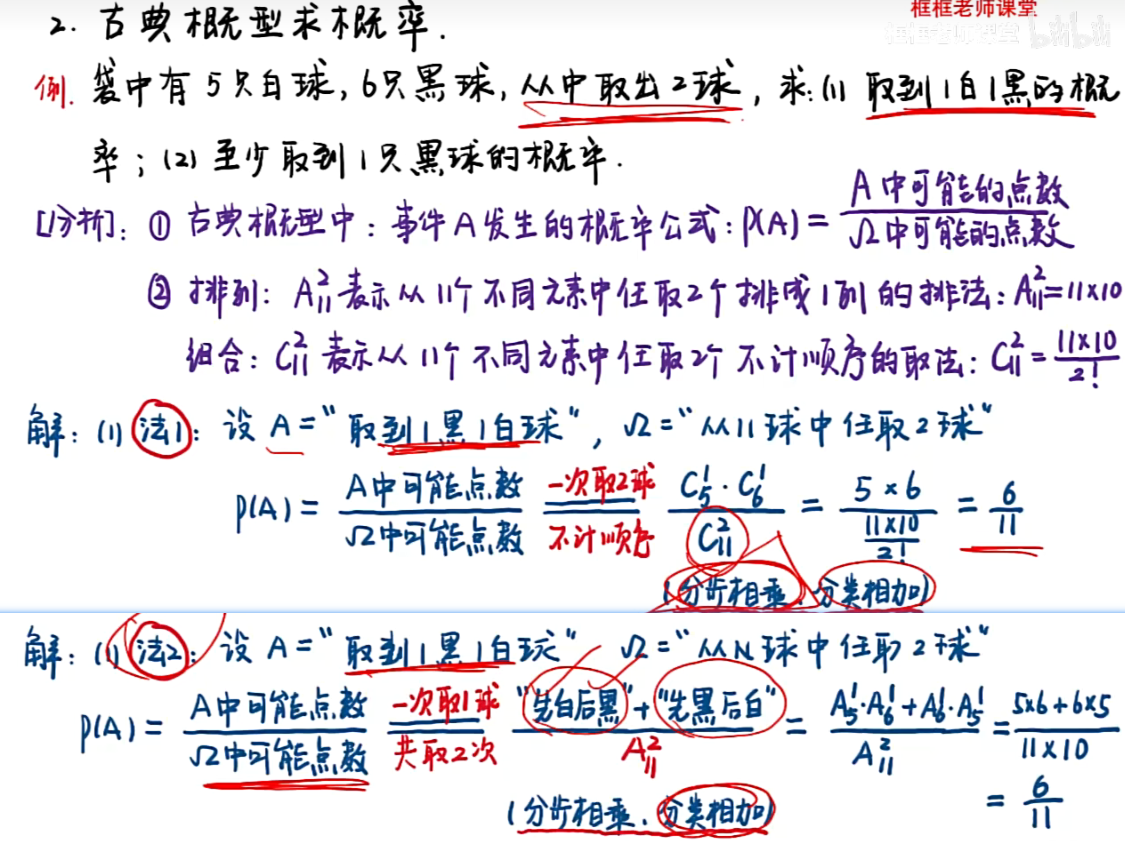 框框老师课堂
框框老师课堂 bilibili
2. 古典概型求概率.
例. 袋中有5只白球, 6只黑球, 从中取出2球, 求: (1) 取到1白1黑的概
率; (2) 至少取到1只黑球的概率.
[分析]: ① 古典概型中: 事件A发生的概率公式: P(A) = A中可能的点数 / Ω中可能的点数
② 排列: A₁₁² 表示从11个不同元素中任取2个排成1列的排法: A₁₁² = 11×10
组合: C₁₁² 表示从11个不同元素中任取2个不计顺序的取法: C₁₁² = 11×10 / 2!
解: (1) 法1: 设 A = "取到1黑1白球", Ω = "从11球中任取2球"
P(A) = A中可能点数 / Ω中可能点数 = (一次取2球 不计顺序) C₅¹·C₆¹ / C₁₁² = 5×6 / (11×10 / 2!) = 6/11
(分步相乘、分类相加)
解: (1) 法2: 设 A = "取到1黑1白球" Ω = "从N球中任取2球"
P(A) = A中可能点数 / Ω中可能点数 = (一次取1球 共取2次) "先白后黑" + "先黑后白" / A₁₁² = A₅¹·A₆¹ + A₆¹·A₅¹ / A₁₁² = 5×6+6×5 / 11×10
= 6/11
(分步相乘、分类相加)